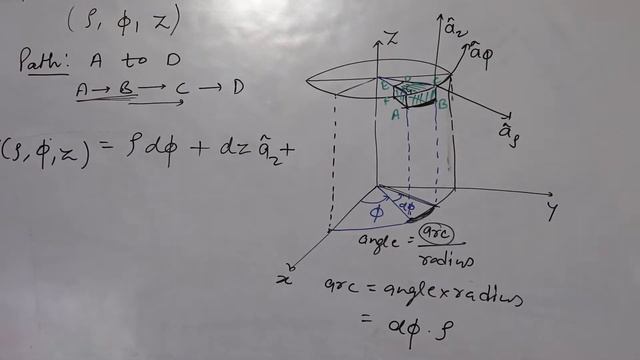 (ρ, φ, z)
Path: A to D
A → B → C → D
(ρ, φ, z) = ρ dφ + dz âz +
z
âz
âφ
E
D
C
F
A
B
âρ
φ
dφ
y
x
angle = arc / radius
arc = angle × radius
= dφ . ρ